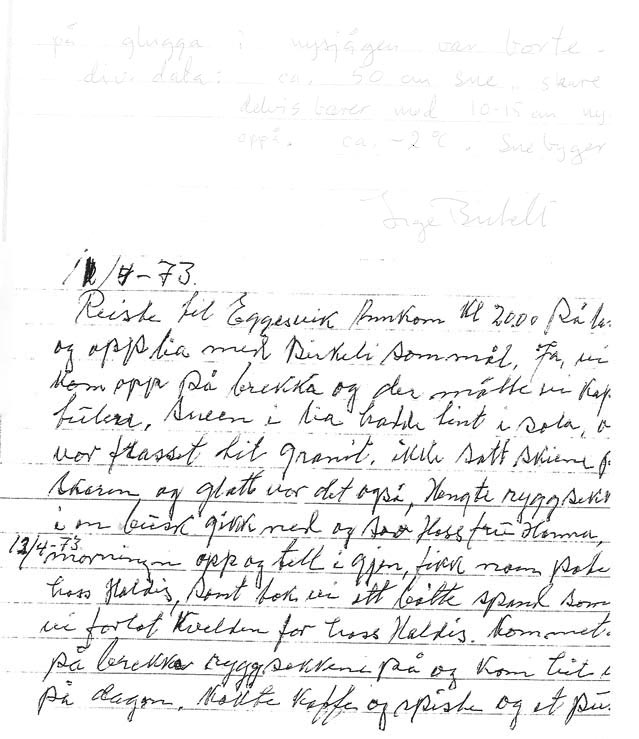 på glugga i nysjågen var borte.
div. data: ca. 50 cm snø, skare
delvis bærer med 10-15 cm ny
oppå. ca. -2°C. Snøbyger
Inge
11/4-73.
Reiste til Eggesvik Annkom Kl 20.00 på
og opp lia med Birkeli som mål, Ja, vi
kom opp på brekka og der måtte vi kap
sneen i lia hadde tint i sola,
vor frosset til granit. ikke satt skiene
skaren, og glatt vor det også, Hengte ryggsekk
i en busk gikk ned og sov Hoss fru Hanna,
12/4-73
morningn opp og till i gjen, fikk noen
hoss Haldis, samt tok vi ett bøtte spand som
vi forlot kvelden for hoss Haldis. Kommet
på brekka ryggsekkene på og kom hit
på dagen, kokte kaffe og spiste og et